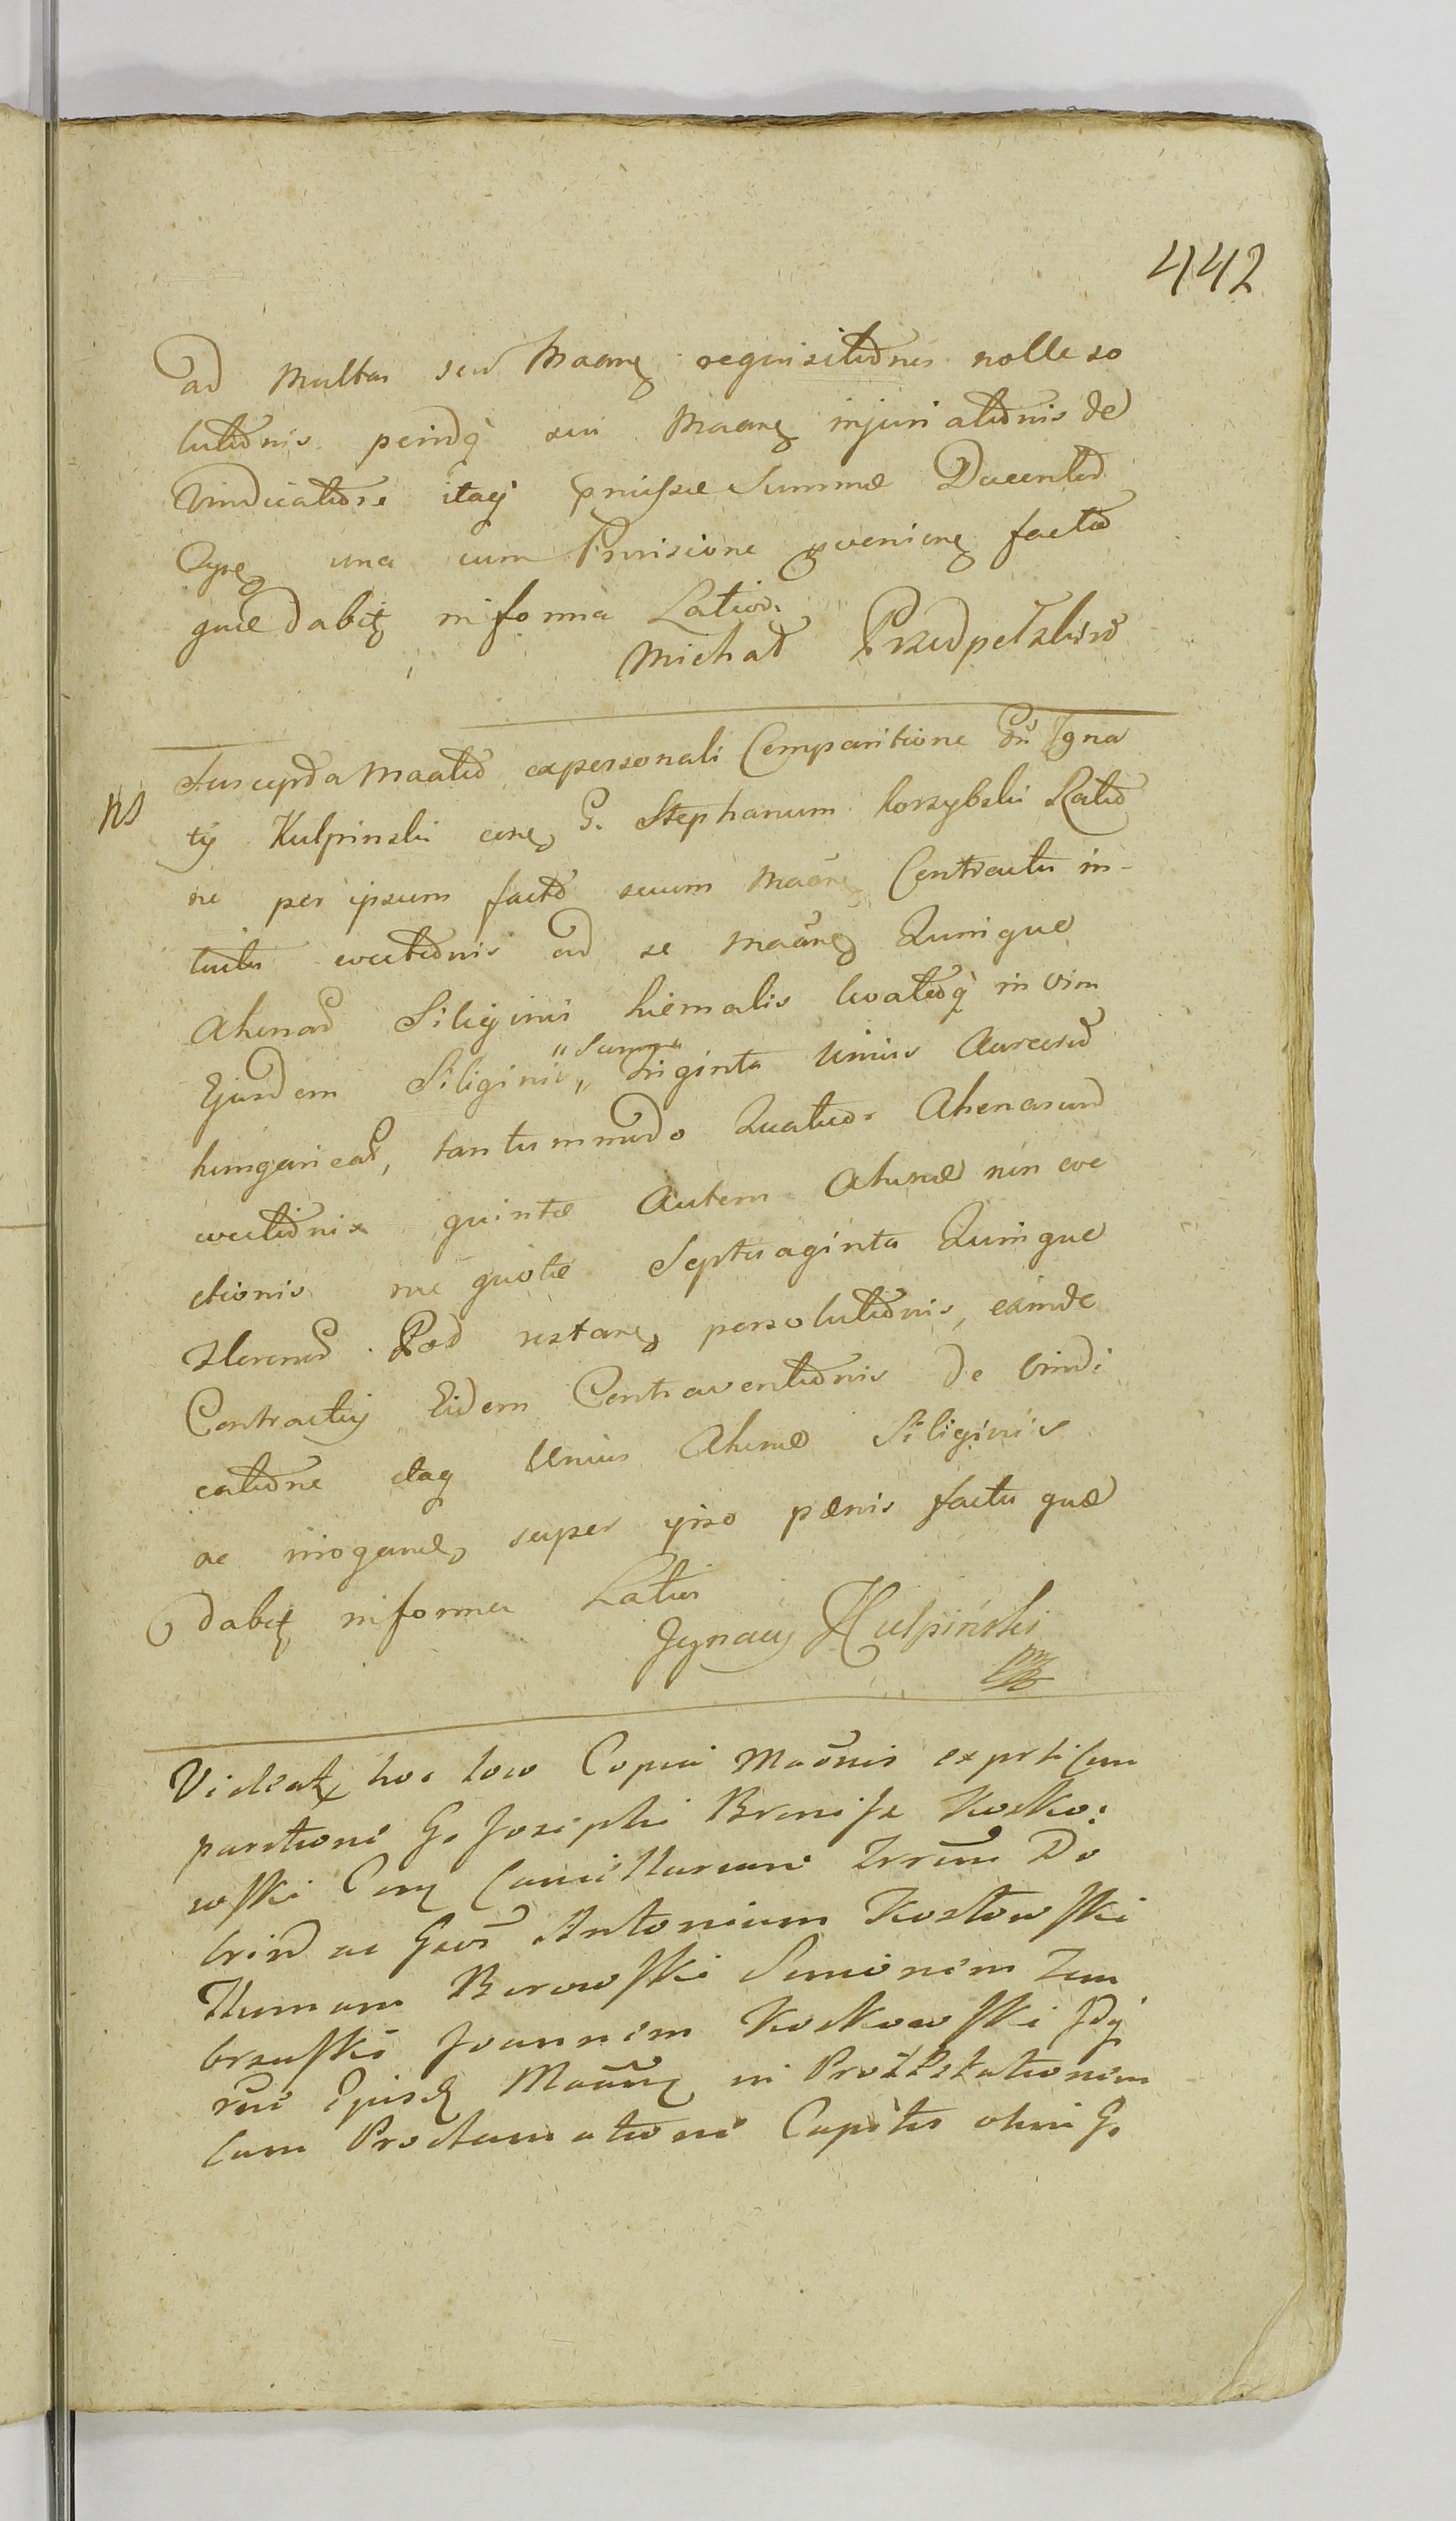 442
ad multas seu Maane requisitiones nolle so
lutionis perindeq sui Maane injuriationis de
Vindicatione itaq pmissae Summae Ducentor
una cum Provisione gvenien facto
quae dabit in forma Latior.
Michał
NS
Suscepta Maatio ex personali Comparitione Gn Igna
tij Kulpinski con G. Stephanum Korzybski Ratio
ne per ipsum facto secum Maane Contractu in-
tuitu evectionis ad se Maane Quinque
Ahenas Siliginis hiemalis levatoq in vim
Ejusdem Siliginis „Summa„ triginta Unius Aureorum
hungarical, tantummodo Quatuor Ahenarum
evectionis quintae Autem Ahenae non eve
ctionis Septuaginta Quinque
Florenor Pol restan persolutionis, eximde
Contractui Eidem Contraventionis de Vindi
catione itaq Unius Ahenae Siliginis
ac irrogand super ipso paenis facta quae
dabit in forma Latiori
Ignacy Kulpiński
mp
Videat hoc loco Copia Maonis ex prli Com
paritione G. Josephi Bronisz Kosko:
wski Con Cancellarium Trrum Do
brin ac Gros Antonium Kozłowski
Thomam Borowski Simonem Zem
brzuski Joannem Koskowski
rui Ejusd Maaone in Protestationem
Cum Proclamatione Capitis olim G.